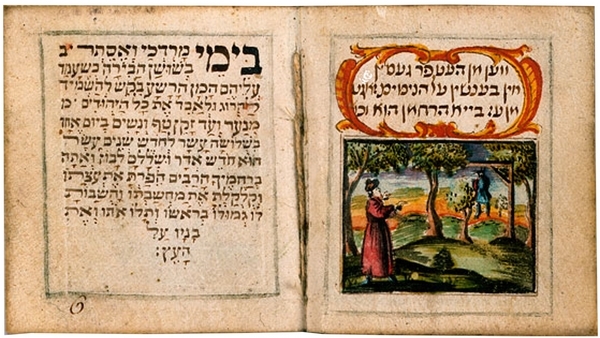 ווען מן העט פר געסין
בענטשין על הניסים
מן בייא הרחמן הוא וכו
בימי מרדכי ואסתר ב
בשושן הבירה כשעמד
עליהם המן הרשע בקש להשמיד
להרוג ולאבד את כל היהודים
מנער ועד זקן טף ונשים ביום אחד
בשלושה עשר לחדש שנים עשר
הוא חדש אדר ושללם לבוז ואתה
ברחמיך הרבים הפרת את עצתו
וקלקלת את מחשבתו והשבות
לו גמולו בראשו ותלו אתו ואת
בניו על
העץ: